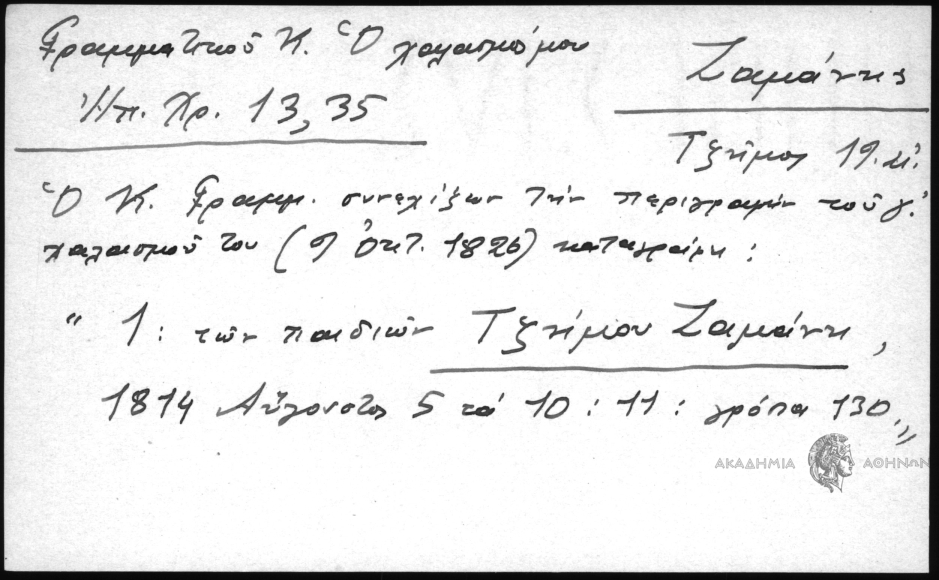 Γραμματικοῦ Κ. Ὁ χαλασμός μου
Ἠπ. Χρ. 13, 35
Ζαμάνης
Τζήμος 19. αἰ.
Ὁ Κ. Γραμμ. συνεχίζων τήν περιγραφήν τοῦ γ΄.
χαλασμοῦ του (9 Ὀκτ. 1826) καταγράφει :
" 1 : τῶν παιδιῶν Τζήμου Ζαμάνη ,
1814 Αὔγουστος 5 τά 10 : 11 : γρόσια 130. "
ΑΚΑΔΗΜΙΑ ΑΘΗΝΩΝ